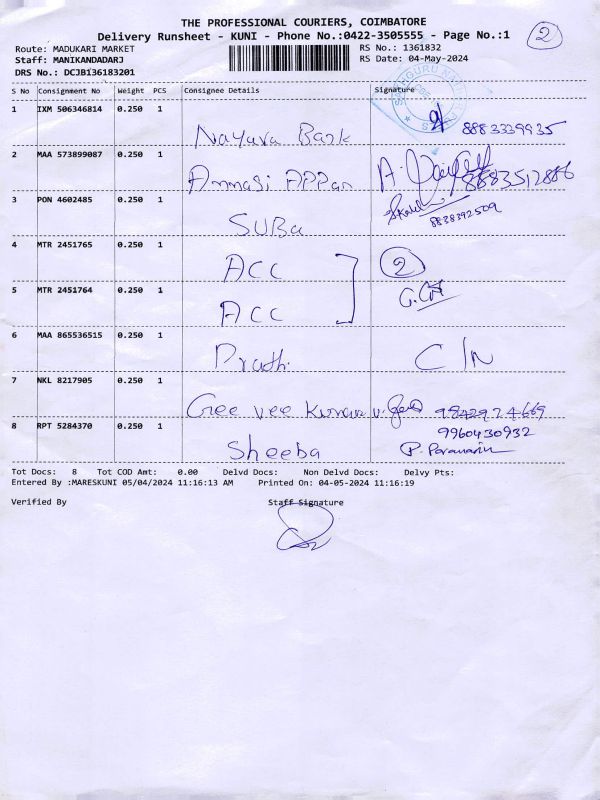 THE PROFESSIONAL COURIERS, COIMBATORE
Delivery Runsheet - KUNI - Phone No.:0422-3505555 - Page No.:1
2
Route: MADUKARI MARKET
RS No.: 1361832
Staff: MANIKANDADARJ
RS Date: 04-May-2024
DRS No.: DCJB136183201
S No Consignment No Weight PCS Consignee Details Signature
1 IXM 506346814 0.250 1
Nayava Bank 8883339935
2 MAA 573899087 0.250 1
Ammasi APPan 8883512886
3 PON 4602485 0.250 1
SUBa 8838392509
4 MTR 2451765 0.250 1
ACC 2
5 MTR 2451764 0.250 1
ACC
6 MAA 865536515 0.250 1
Pradh. C/N
7 NKL 8217905 0.250 1
Gee vee Kumar 9842924669
8 RPT 5284370 0.250 1 9960430932
Sheeba
Tot Docs: 8 Tot COD Amt: 0.00 Delvd Docs: Non Delvd Docs: Delvy Pts:
Entered By :MARESKUNI 05/04/2024 11:16:13 AM Printed On: 04-05-2024 11:16:19
Verified By Staff Signature